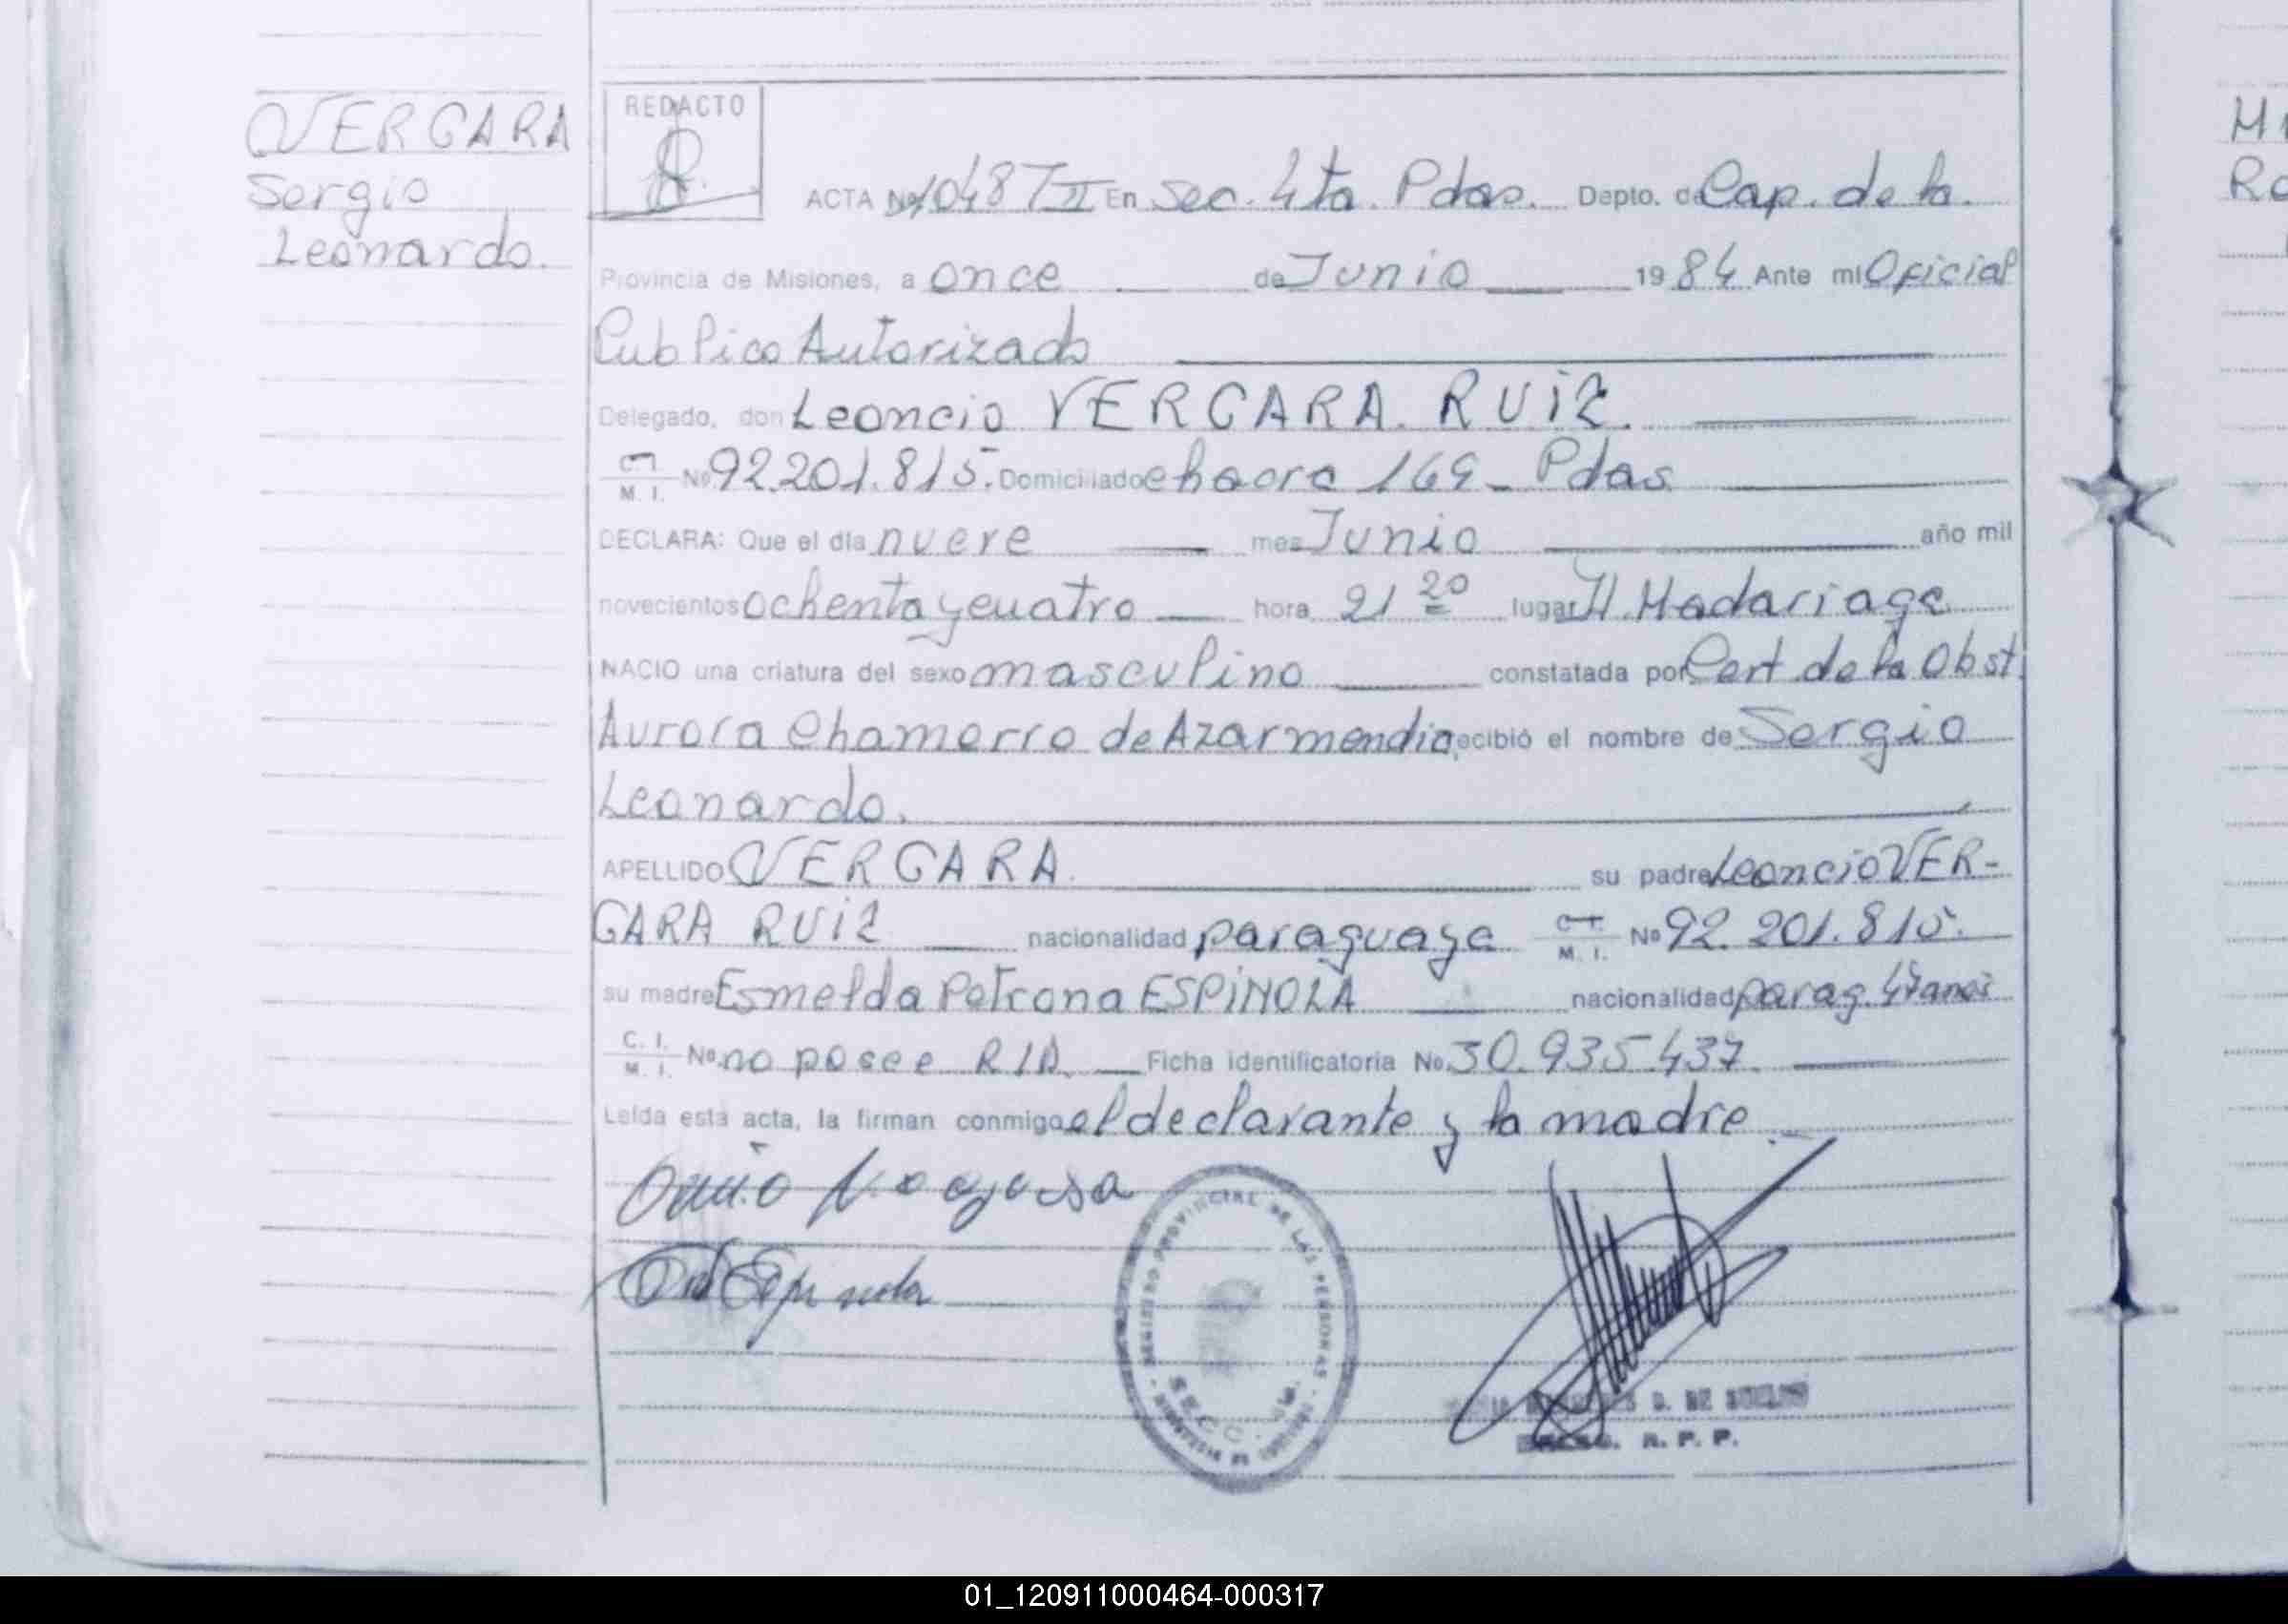 VERGARA
Sergio
Leonardo.
REDACTO
ACTA Nº 1048 T II En Sec. 4ta. Pdas. Depto. de Cap. de la.
Provincia de Misiones, a once de Junio 1984 Ante mi Oficial
Publico Autorizado
Delegado, don Leoncio VERGARA RUIZ.
C.I. M. I. Nº 92.201.815. Domiciliado chacra 169 - Pdas
DECLARA: Que el día nueve mes Junio año mil
novecientos ochenta y cuatro hora 21 20 lugar H. Madariaga
NACIO una criatura del sexo masculino constatada por Cert. de la Obst.
Aurora Chamorro de Azarmendia, recibió el nombre de Sergio
Leonardo.
APELLIDO VERGARA su padre Leoncio VER-
GARA RUIZ nacionalidad paraguaya C.I. M. I. Nº 92.201.815.
su madre Esmelda Petrona ESPINOLA nacionalidad parag. 47 anos
C. I. M. I. Nº no posee R/D. Ficha identificatoria No. 30.935.437.
Leída esta acta, la firman conmigo el declarante y la madre.
REGISTRO PROVINCIAL DE LAS PERSONAS
SECC.
D. DE
R. P. P.
M
Ro
01_120911000464-000317